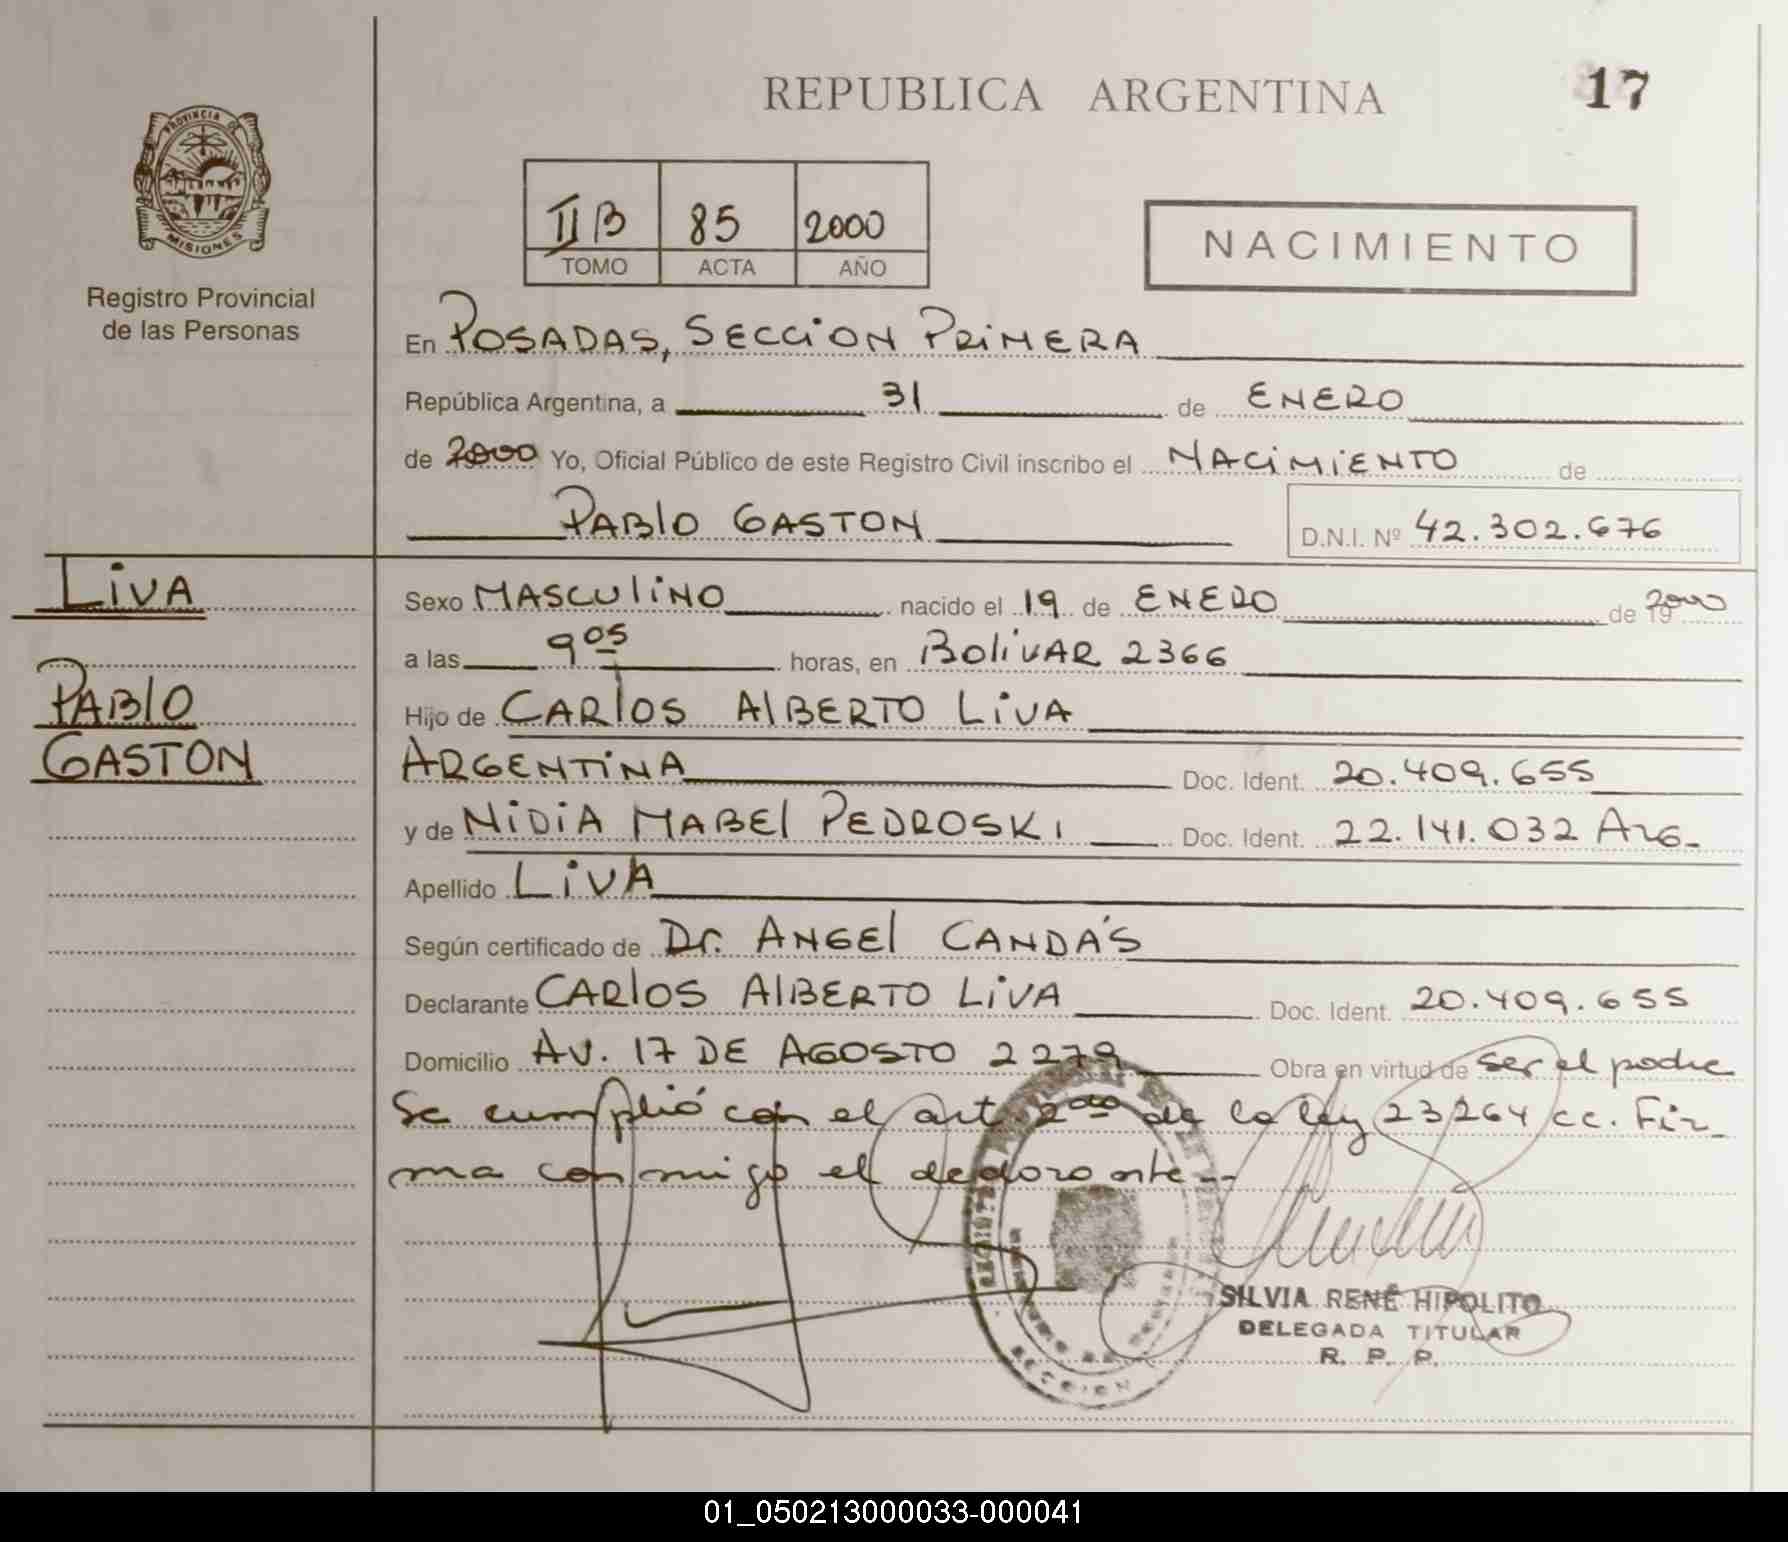 REPUBLICA ARGENTINA
17
PROVINCIA DE
MISIONES
Registro Provincial
de las Personas
II B 85 2000
TOMO ACTA AÑO
NACIMIENTO
En POSADAS, SECCION PRIMERA
República Argentina, a 31 de ENERO
de 2000 Yo, Oficial Público de este Registro Civil inscribo el NACIMIENTO de
PABLO GASTON D.N.I. Nº 42.302.676
LIVA
PABLO
GASTON
Sexo MASCULINO nacido el 19 de ENERO de 19 2000
a las 9 05 horas, en BOLIVAR 2366
Hijo de CARLOS ALBERTO LIVA
ARGENTINA Doc. Ident. 20.409.655
y de NIDIA MABEL PEDROSKI Doc. Ident. 22.141.032 ARG.
Apellido LIVA
Según certificado de Dr. ANGEL CANDÁS
Declarante CARLOS ALBERTO LIVA Doc. Ident. 20.409.655
Domicilio AV. 17 DE AGOSTO 2279 Obra en virtud de ser el padre
Se cumplió con el art 2do de la ley 23264 cc. Fir-
ma conmigo el declarante.-
SECCION
SILVIA RENÉ HIPOLITO
DELEGADA TITULAR
R. P. P.
01_050213000033-000041